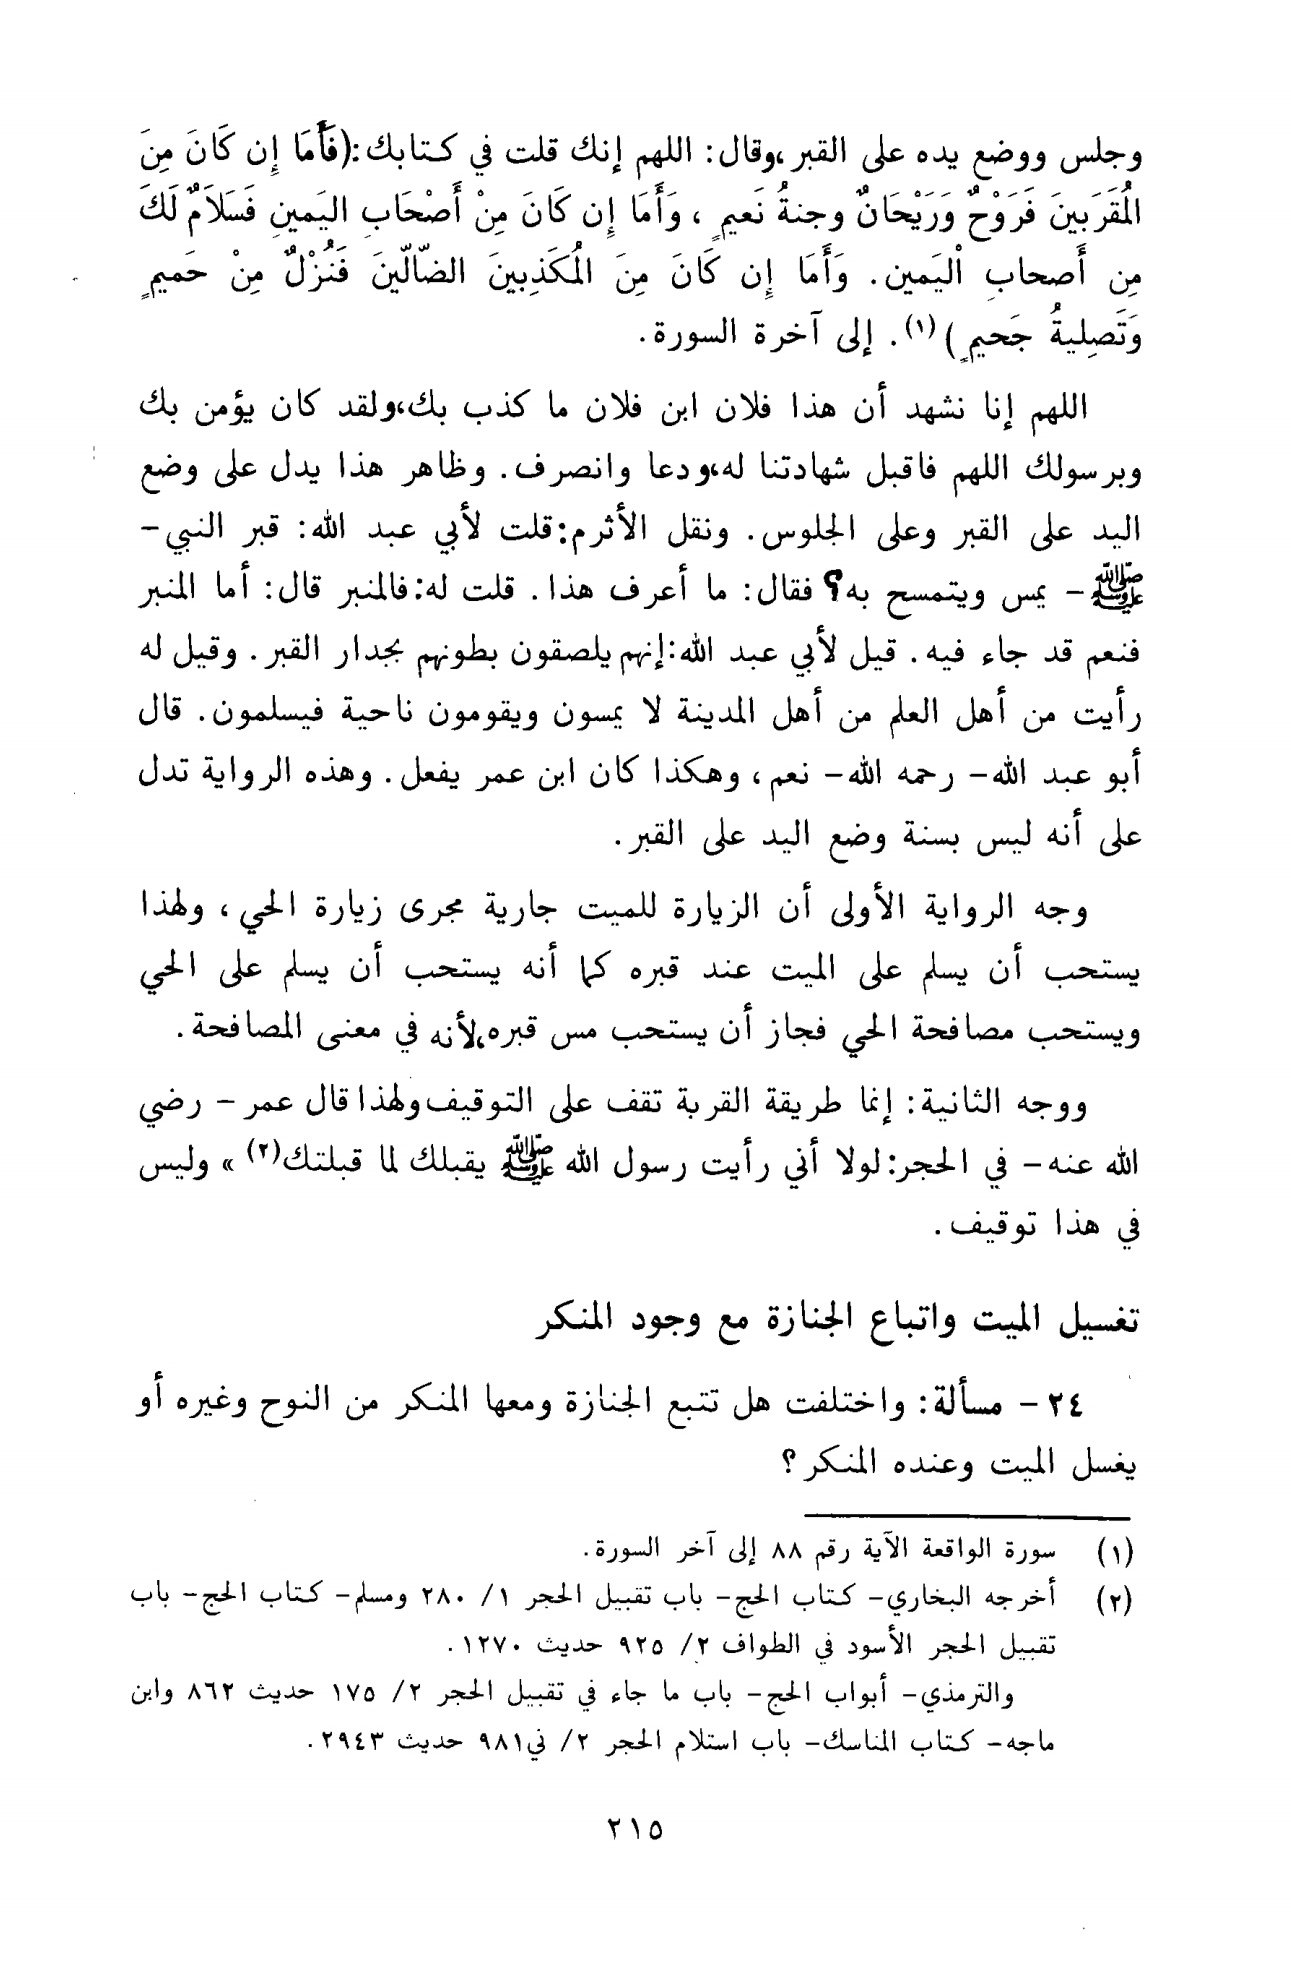 وجلس ووضع يده على القبر ،وقال: اللهم إنك قلت في كتابك:(فَأَمَا إِن كَانَ مِنَ
المُقَرَبينَ فَرَوْحٌ وَرَيْحَانٌ وجنةُ نَعيمٍ ، وَأَمَا إِن كَانَ مِنْ أَصْحَابِ اليَمينِ فَسَلاَمٌ لَكَ
مِن أَصحابِ اْليَمين. وَأَمَا إِن كَانَ مِنَ المُكَذِبينَ الضّالّينَ فَنُزْلٌ مِنْ حَميمٍ
وَتَصِليةُ جَحيمٍ )(١). إلى آخرة السورة.
اللهم إنا نشهد أن هذا فلان ابن فلان ما كذب بك،ولقد كان يؤمن بك
وبرسولك اللهم فاقبل شهادتنا له،ودعا وانصرف. وظاهر هذا يدل على وضع
اليد على القبر وعلى الجلوس. ونقل الأثرم:قلت لأبي عبد الله: قبر النبي-
ﷺ- يمس ويتمسح به؟ فقال: ما أعرف هذا. قلت له:فالمنبر قال: أما المنبر
فنعم قد جاء فيه. قيل لأبي عبد الله:إنهم يلصقون بطونهم بجدار القبر. وقيل له
رأيت من أهل العلم من أهل المدينة لا يمسون ويقومون ناحية فيسلمون. قال
أبو عبد الله- رحمه الله- نعم، وهكذا كان ابن عمر يفعل. وهذه الرواية تدل
على أنه ليس بسنة وضع اليد على القبر.
وجه الرواية الأولى أن الزيارة للميت جارية مجرى زيارة الحي، ولهذا
يستحب أن يسلم على الميت عند قبره كما أنه يستحب أن يسلم على الحي
ويستحب مصافحة الحي فجاز أن يستحب مس قبره،لأنه في معنى المصافحة.
ووجه الثانية: إنما طريقة القربة تقف على التوقيف ولهذا قال عمر- رضي
الله عنه- في الحجر:لولا أني رأيت رسول الله ﷺ يقبلك لما قبلتك(٢) » وليس
في هذا توقيف.
تغسيل الميت واتباع الجنازة مع وجود المنكر
٢٤- مسألة: واختلفت هل تتبع الجنازة ومعها المنكر من النوح وغيره أو
يغسل الميت وعنده المنكر؟
(١) سورة الواقعة الآية رقم ٨٨ إلى آخر السورة.
(٢) أخرجه البخاري- كتاب الحج- باب تقبيل الحجر ١/ ٢٨٠ ومسلم- كتاب الحج- باب
تقبيل الحجر الأسود في الطواف ٢/ ٩٢٥ حديث ١٢٧٠.
والترمذي- أبواب الحج- باب ما جاء في تقبيل الحجر ٢/ ١٧٥ حديث ٨٦٢ وابن
ماجه- كتاب المناسك- باب استلام الحجر ٢/ ني٩٨١ حديث ٢٩٤٣.
٢١٥